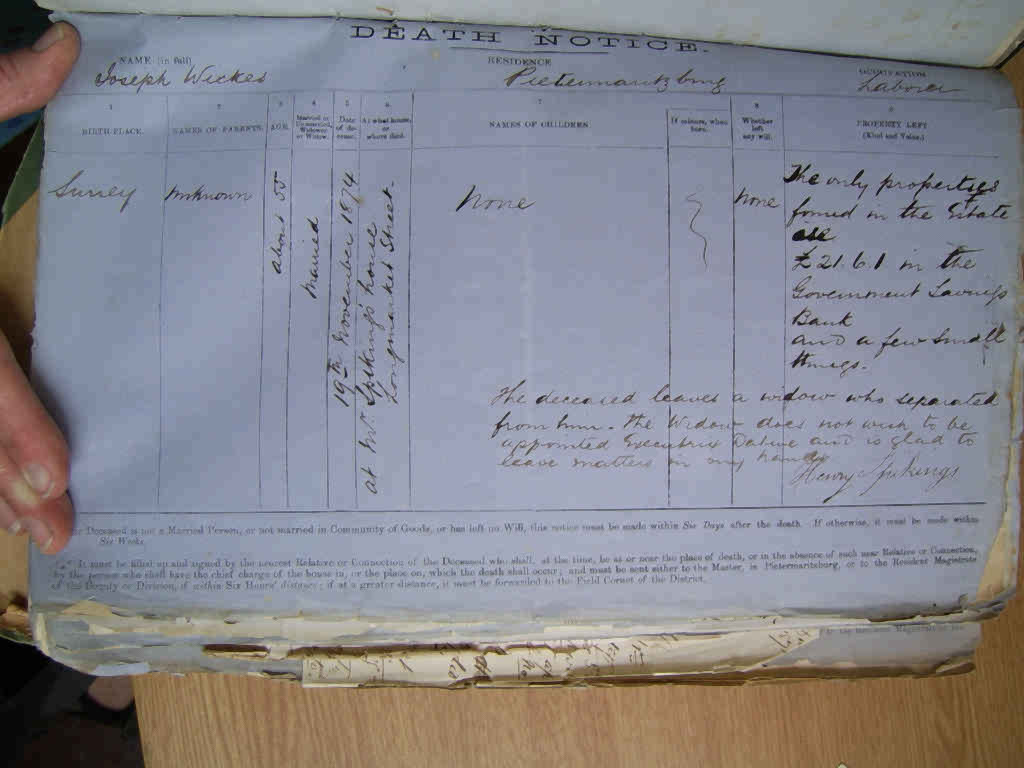 DEATH NOTICE.
NAME (in full) RESIDENCE OCCUPATION
Joseph Wickes Pietermaritzburg Laborer
1 2 3 4 5 6 7 8 9
BIRTH-PLACE. NAMES OF PARENTS. AGE. Married or Unmarried, Widower or Widow. Date of decease. At what house, or where died. NAMES OF CHILDREN If colours, when born. Whether left any will. PROPERTY LEFT (Kind and Value.)
Surrey
Unknown
About 55
Married
19th November 1874
at Mr. Spekings house
Longmarket Street.
None
None
The only properties
found in the Estate
are
£21.6.1 in the
Government Savings
Bank
and a few small
things.
The deceased leaves a widow who separated
from him. The Widow does not wish to be
appointed Executrix Dative and is glad to
leave matters in my hands
Henry Spekings
Deceased is not a Married Person, or not married in Community of Goods, or has left no Will, this notice must be made within Six Days after the death. If otherwise, it must be made within
Six Weeks.
It must be filled up and signed by the nearest Relative or Connection of the Deceased who shall, at the time, be at or near the place of death, or in the absence of such near Relative or Connection,
by the person who shall have the chief charge of the house in, or the place on, which the death shall occur; and must be sent either to the Master, in Pietermaritzburg, or to the Resident Magistrate
of the County or Division, if within Six Hours' distance; if at a greater distance, it must be forwarded to the Field Cornet of the District.